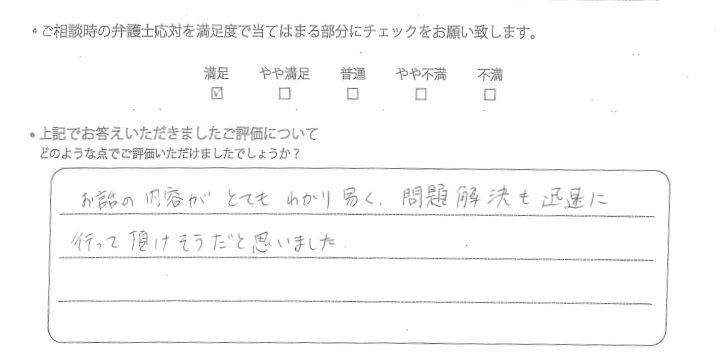 ・ご相談時の弁護士応対を満足度で当てはまる部分にチェックをお願い致します。
満足 やや満足 普通 やや不満 不満
☑ □ □ □ □
・上記でお答えいただきましたご評価について
どのような点でご評価いただけましたでしょうか？
お話の内容がとてもわかり易く、問題解決も迅速に
行って頂けそうだと思いました.